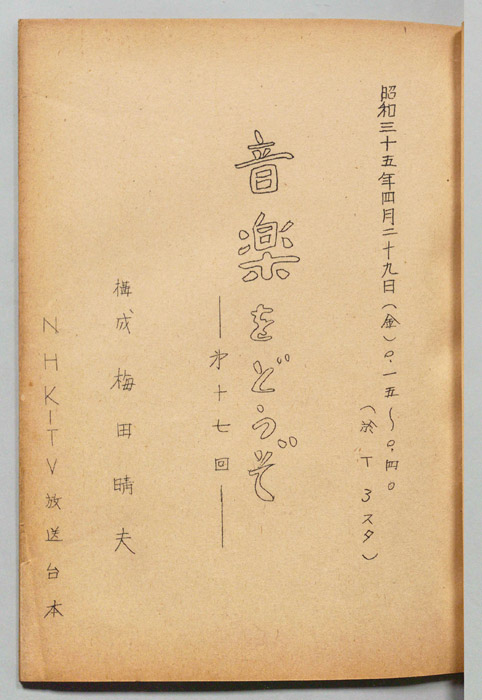 昭和三十五年四月二十九日(金)〇.一五〜〇.四〇
(於T3スタ)
音楽をどうぞ
―第十七回―
構成 梅田晴夫
NHK-TV放送台本